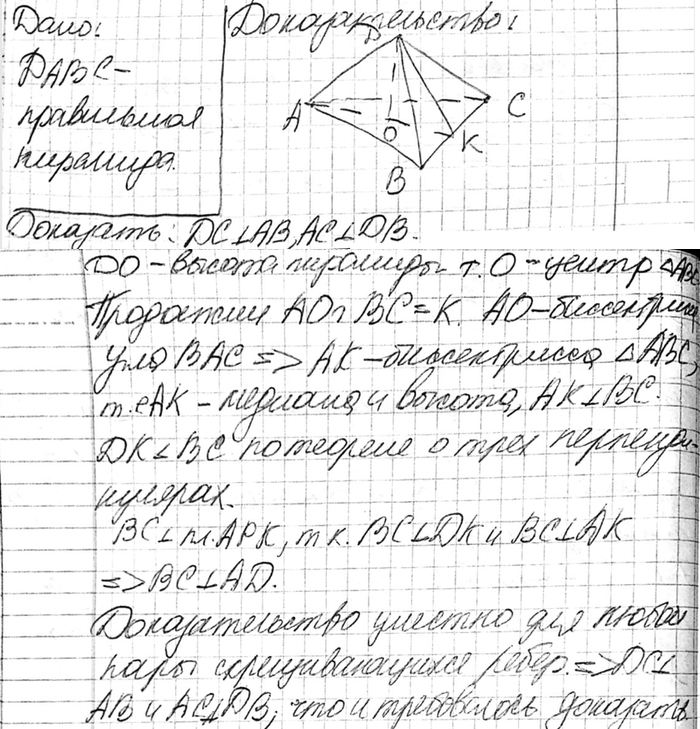 Дано:
DABC –
правильная
пирамида.
Доказательство:
A
O
B
K
C
Доказать: DC⊥AB, AC⊥DB.
DO – высота пирамиды т. O – центр △ABC
Продолжим AO∩BC=K. AO – биссектриса
угла BAC => AK – биссектрисса △ABC,
т.е AK – медиана и высота, AK⊥BC.
DK⊥BC по теореме о трех перпенди-
кулярах.
BC⊥пл.APK, т к. BC⊥DK и BC⊥AK
=> BC⊥AD.
Доказательство уместно для любой
пары скрещивающихся ребер. => DC⊥
AB и AC⊥DB, что и требовалось доказать